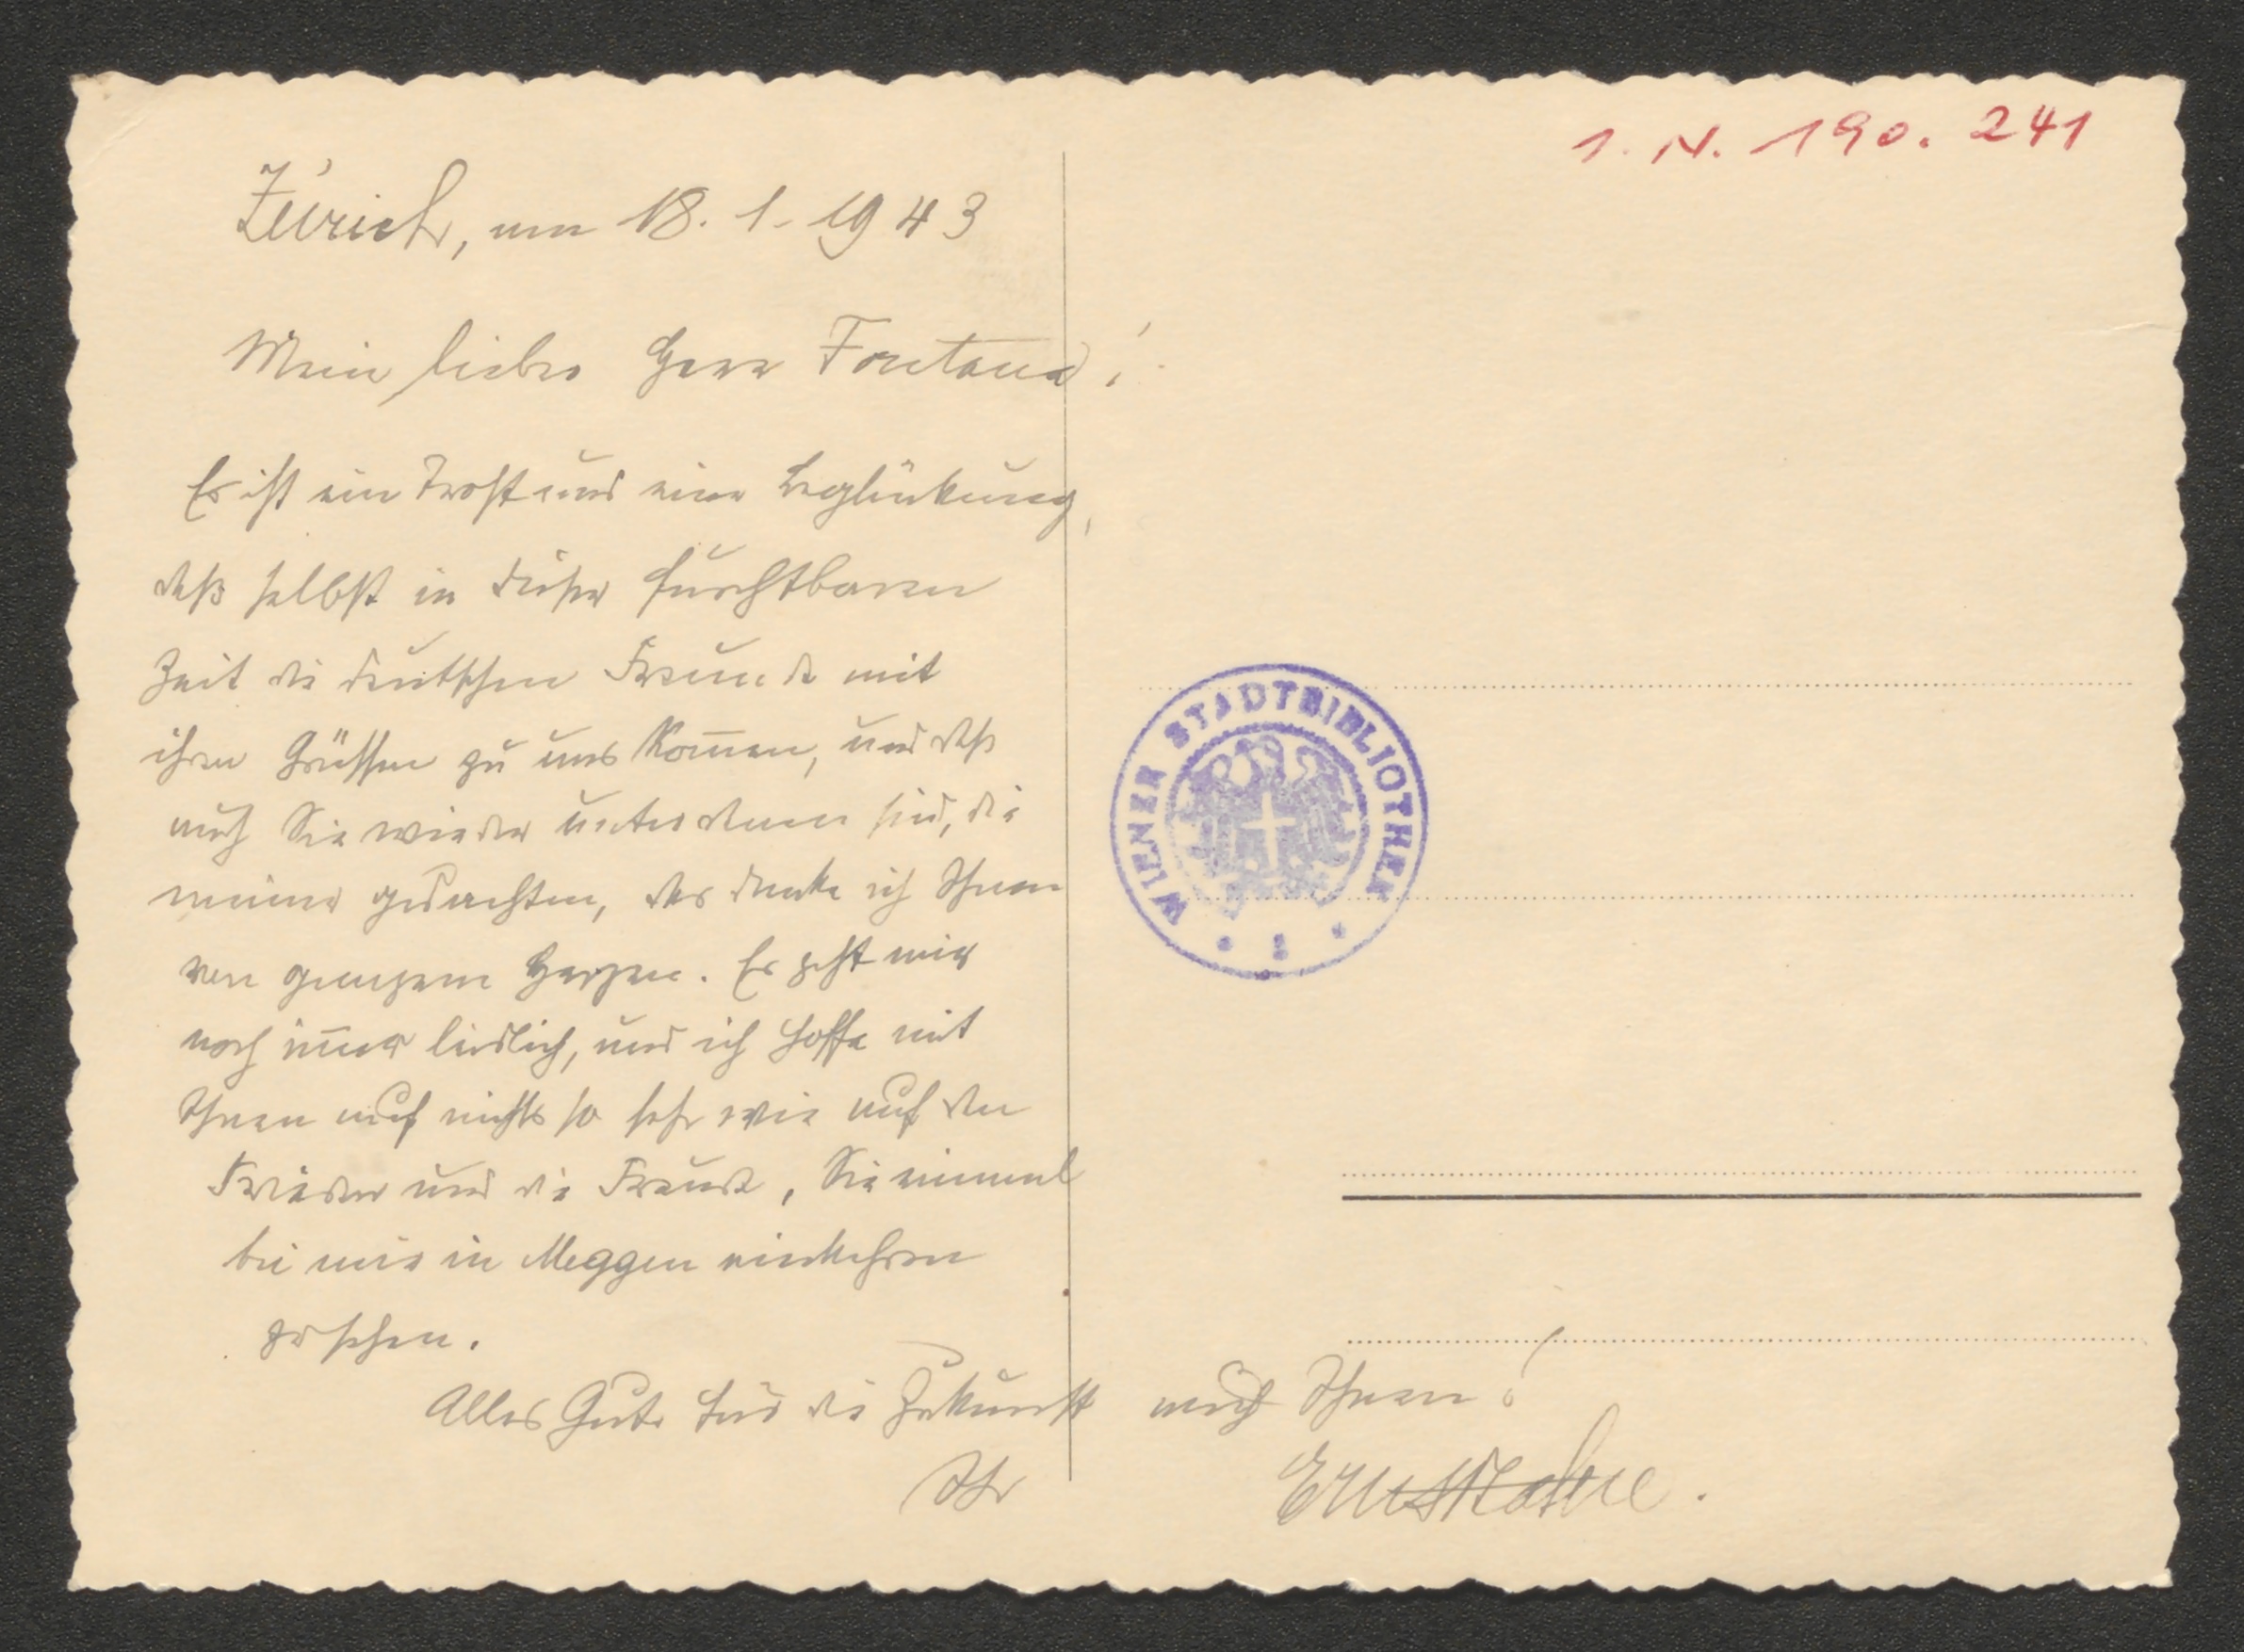 I. N. 190. 241
Zürich, am 18. 1. 1943
Mein lieber Herr Fontana!
Es ist ein Trost und eine Beglückung,
daß selbst in dieser furchtbaren
Zeit die deutschen Freunde mit
ihren Grüssen zu uns kom̅en, und daß
auch Sie wieder unter denen sind, die
meiner gedachten, das danke ich Ihnen
von ganzem Herzen. Es geht mir
noch im̅er leidlich, und ich hoffe mit
Ihnen auf nichts so sehr wie auf den
Frieden und die Freude, Sie einmal
bei mir in Meggen einkehren
zu sehen.
Alles Gute für die Zukunft auch Ihnen!
Ihr Ernst Zahn.
WIENER STADTBIBLIOTHEK